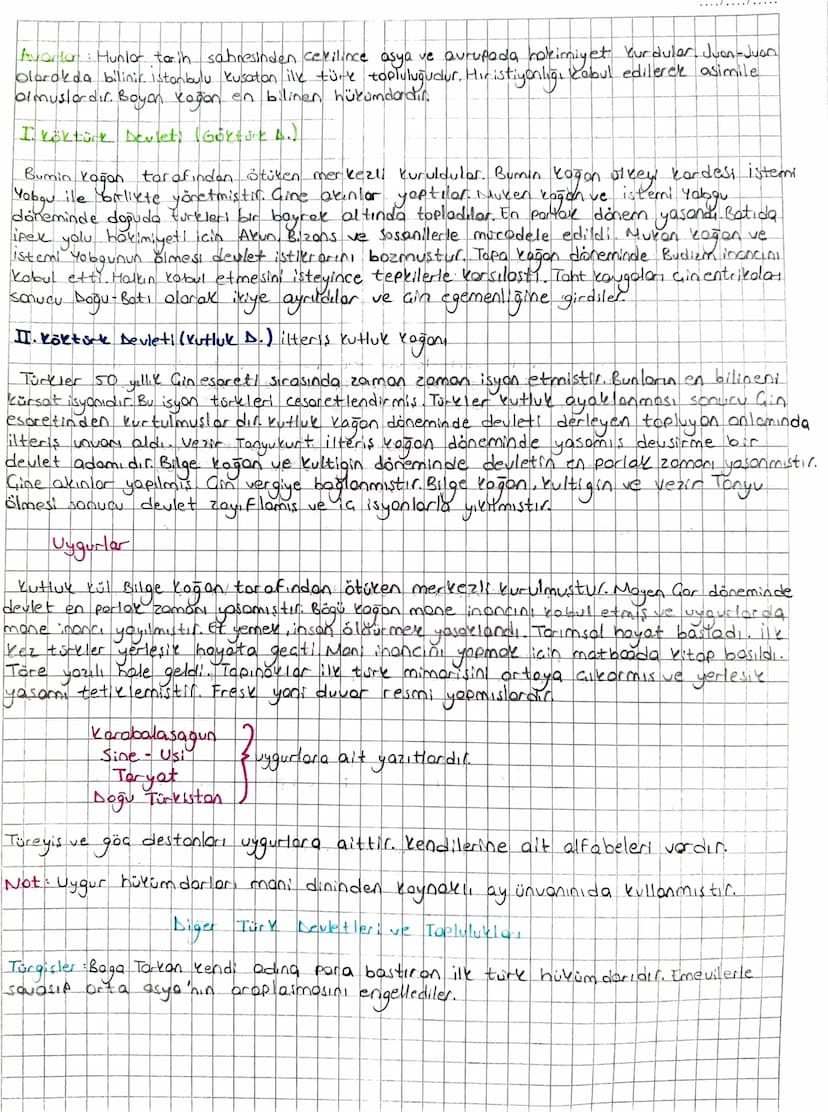 Avarlar: Hunlar tarih sahnesinden cekilince asya ve avrupada hakimiyet kurdular. Juan-Juan
olarakda bilinir. istanbulu kusatan ilk türk topluluğudur. Hıristiyonlığı kabul edilerek asimile
olmuslardır. Boyan kağan en bilinen hükümdardır.
I. Köktürk Devleti (Göktürk D.)
Bumin Kağan tarafından ötüken merkezli kuruldular. Bumin kağan ülkeyi kardesi istemi
Yabgu ile birlikte yönetmistir. Cine akınlar yaptılar. Muken kağan ve istemi Yabgu
döneminde doğuda türkleri bir bayrak altında topladılar. En parlak dönem yasandı. Batıda
ipek yolu hakimiyeti icin Akun, Bizans ve Sasanilerle mücadele edildi. Mukan kağan ve
istemi Yabgunun ölmesi devlet istikrarını bozmustur. Tapa kağan döneminde Budizm inancını
kabul etti. Halkın kabul etmesini isteyince tepkilerle karsılastı. Taht kavgaları cin entrikaları
sonucu Doğu-Batı olarak ikiye ayrıldılar ve cin egemenliğine girdiler.
II. Köktürk Devleti (Kutluk D.) ilteris kutluk kağan
Türkler 50 yıllık Cin esareti sırasında zaman zaman isyan etmistir. Bunların en bilineni
kürsat isyanıdır. Bu isyan türkleri cesaretlendirmis. Türkler kutluk ayaklanması sonucu Cin
esaretinden kurtulmuslar dır. Kutluk kağan döneminde devleti derleyen toplayan anlamında
ilteris unvanı aldı. vezir Tonyukurt ilteris kağan döneminde yasamıs devsirme bir
devlet adamı dır. Bilge kağan ve kultigin döneminde devletin en parlak zamanı yasanmıstır.
Cine akınlar yapılmıs Cin vergiye bağlanmıstır. Bilge kağan, kultigin ve vezir Tonyu
ölmesi sonucu devlet zayıflamıs ve ic isyonlarla yıkılmıstır.
Uygurlar
Kutluk kül Bilge kağan tarafından ötüken merkezli kurulmustur. Moyen Cor döneminde
devlet en parlak zamanı yasamıstır. Bögü kağan mane inancını kabul etmis ve uygurlarda
mane inancı yayılmıstır. Et yemek, insan öldürmek yasaklandı. Tarımsal hayat bastadı. ilk
kez türkler yerlesik hayata gecti. Mani inancını yapmak icin matbaada kitap basıldı.
Töre yazılı hale geldi. Tapınaklar ilk türk mimarisini ortaya cıkarmıs ve yerlesik
yasamı tetiklemistir. Fresk yani duvar resmi yapmıslardır.
Karabalasagun
Sine - Usi
Taryat
Doğu Türkistan
uygurlara ait yazıtlardır.
Türeyis ve göc destanları uygurlara aittir. kendilerine ait alfabeleri vardır.
Not: Uygur hükümdarları mani dininden kaynaklı ay ünvanınıda kullanmıstır.
Diğer Türk Devletleri ve Toplulukları
Türgisler: Baga Tarkan kendi adına para bastıran ilk türk hükümdarıdır. Emevilerle
savasıp orta asya'nın araplasmasını engellediler.